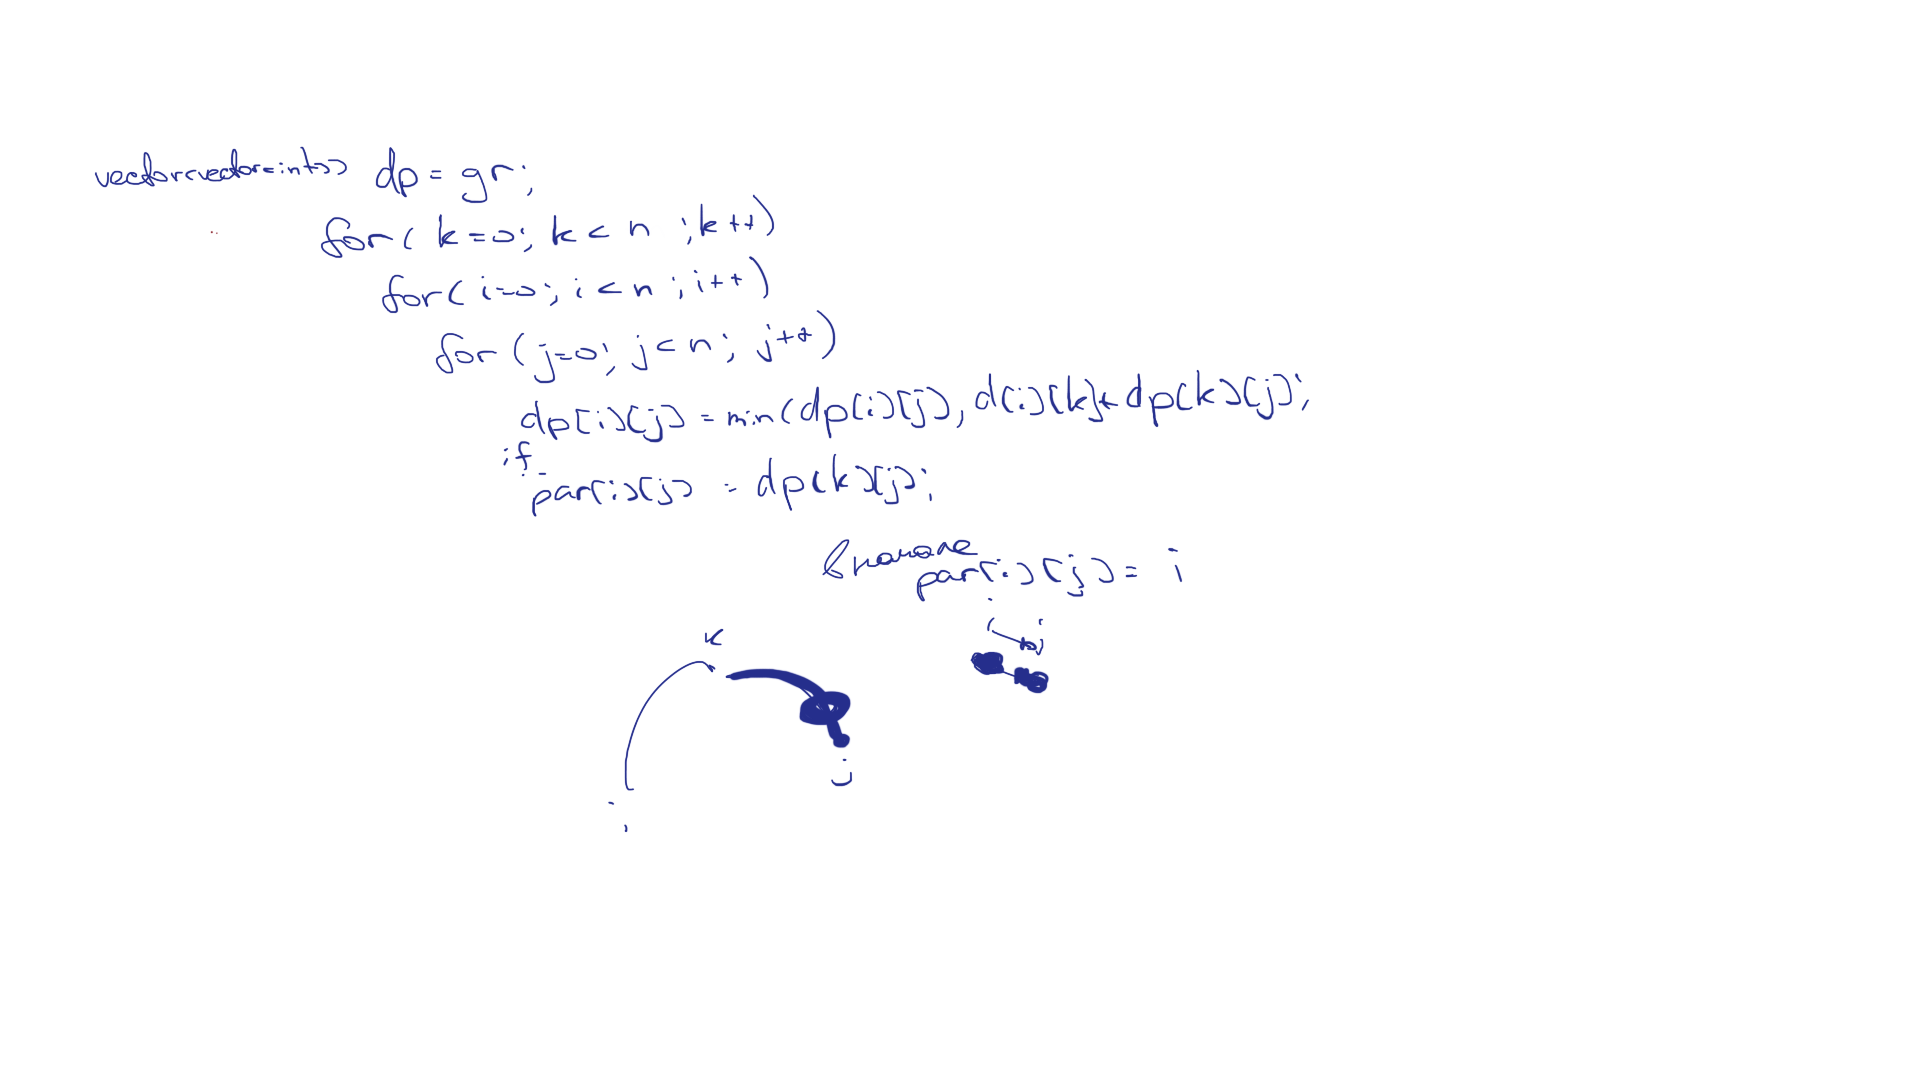 vector<vector<int>> dp = gr;
for( k=0; k < n ; k++)
for( i=0; i < n ; i++)
for ( j=0; j < n; j++)
dp[i][j] = min(dp[i][j], d[i][k]+ dp[k][j];
if
par[i][j] = dp[k][j];
вначале
par[i][j] = i
i j
k
j
i